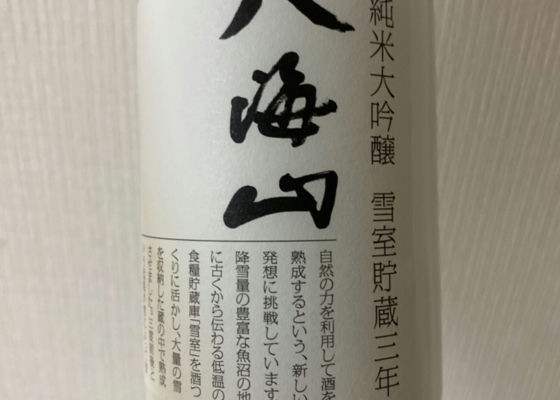 純米大吟醸 雪室貯蔵三年
八海山
自然の力を利用して酒を
熟成するという、新しい
発想に挑戦しています
降雪量の豊富な魚沼の地
に古くから伝わる低温の
食糧貯蔵庫「雪室」を酒づ
くりに活かし、大量の雪
を収納した蔵の中で熟成